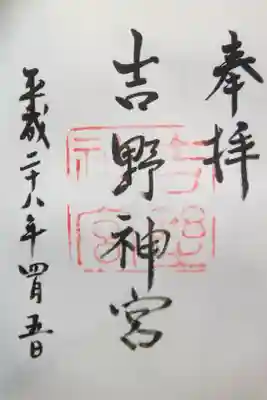 奉拝
吉野神宮
平成二十八年四月五日